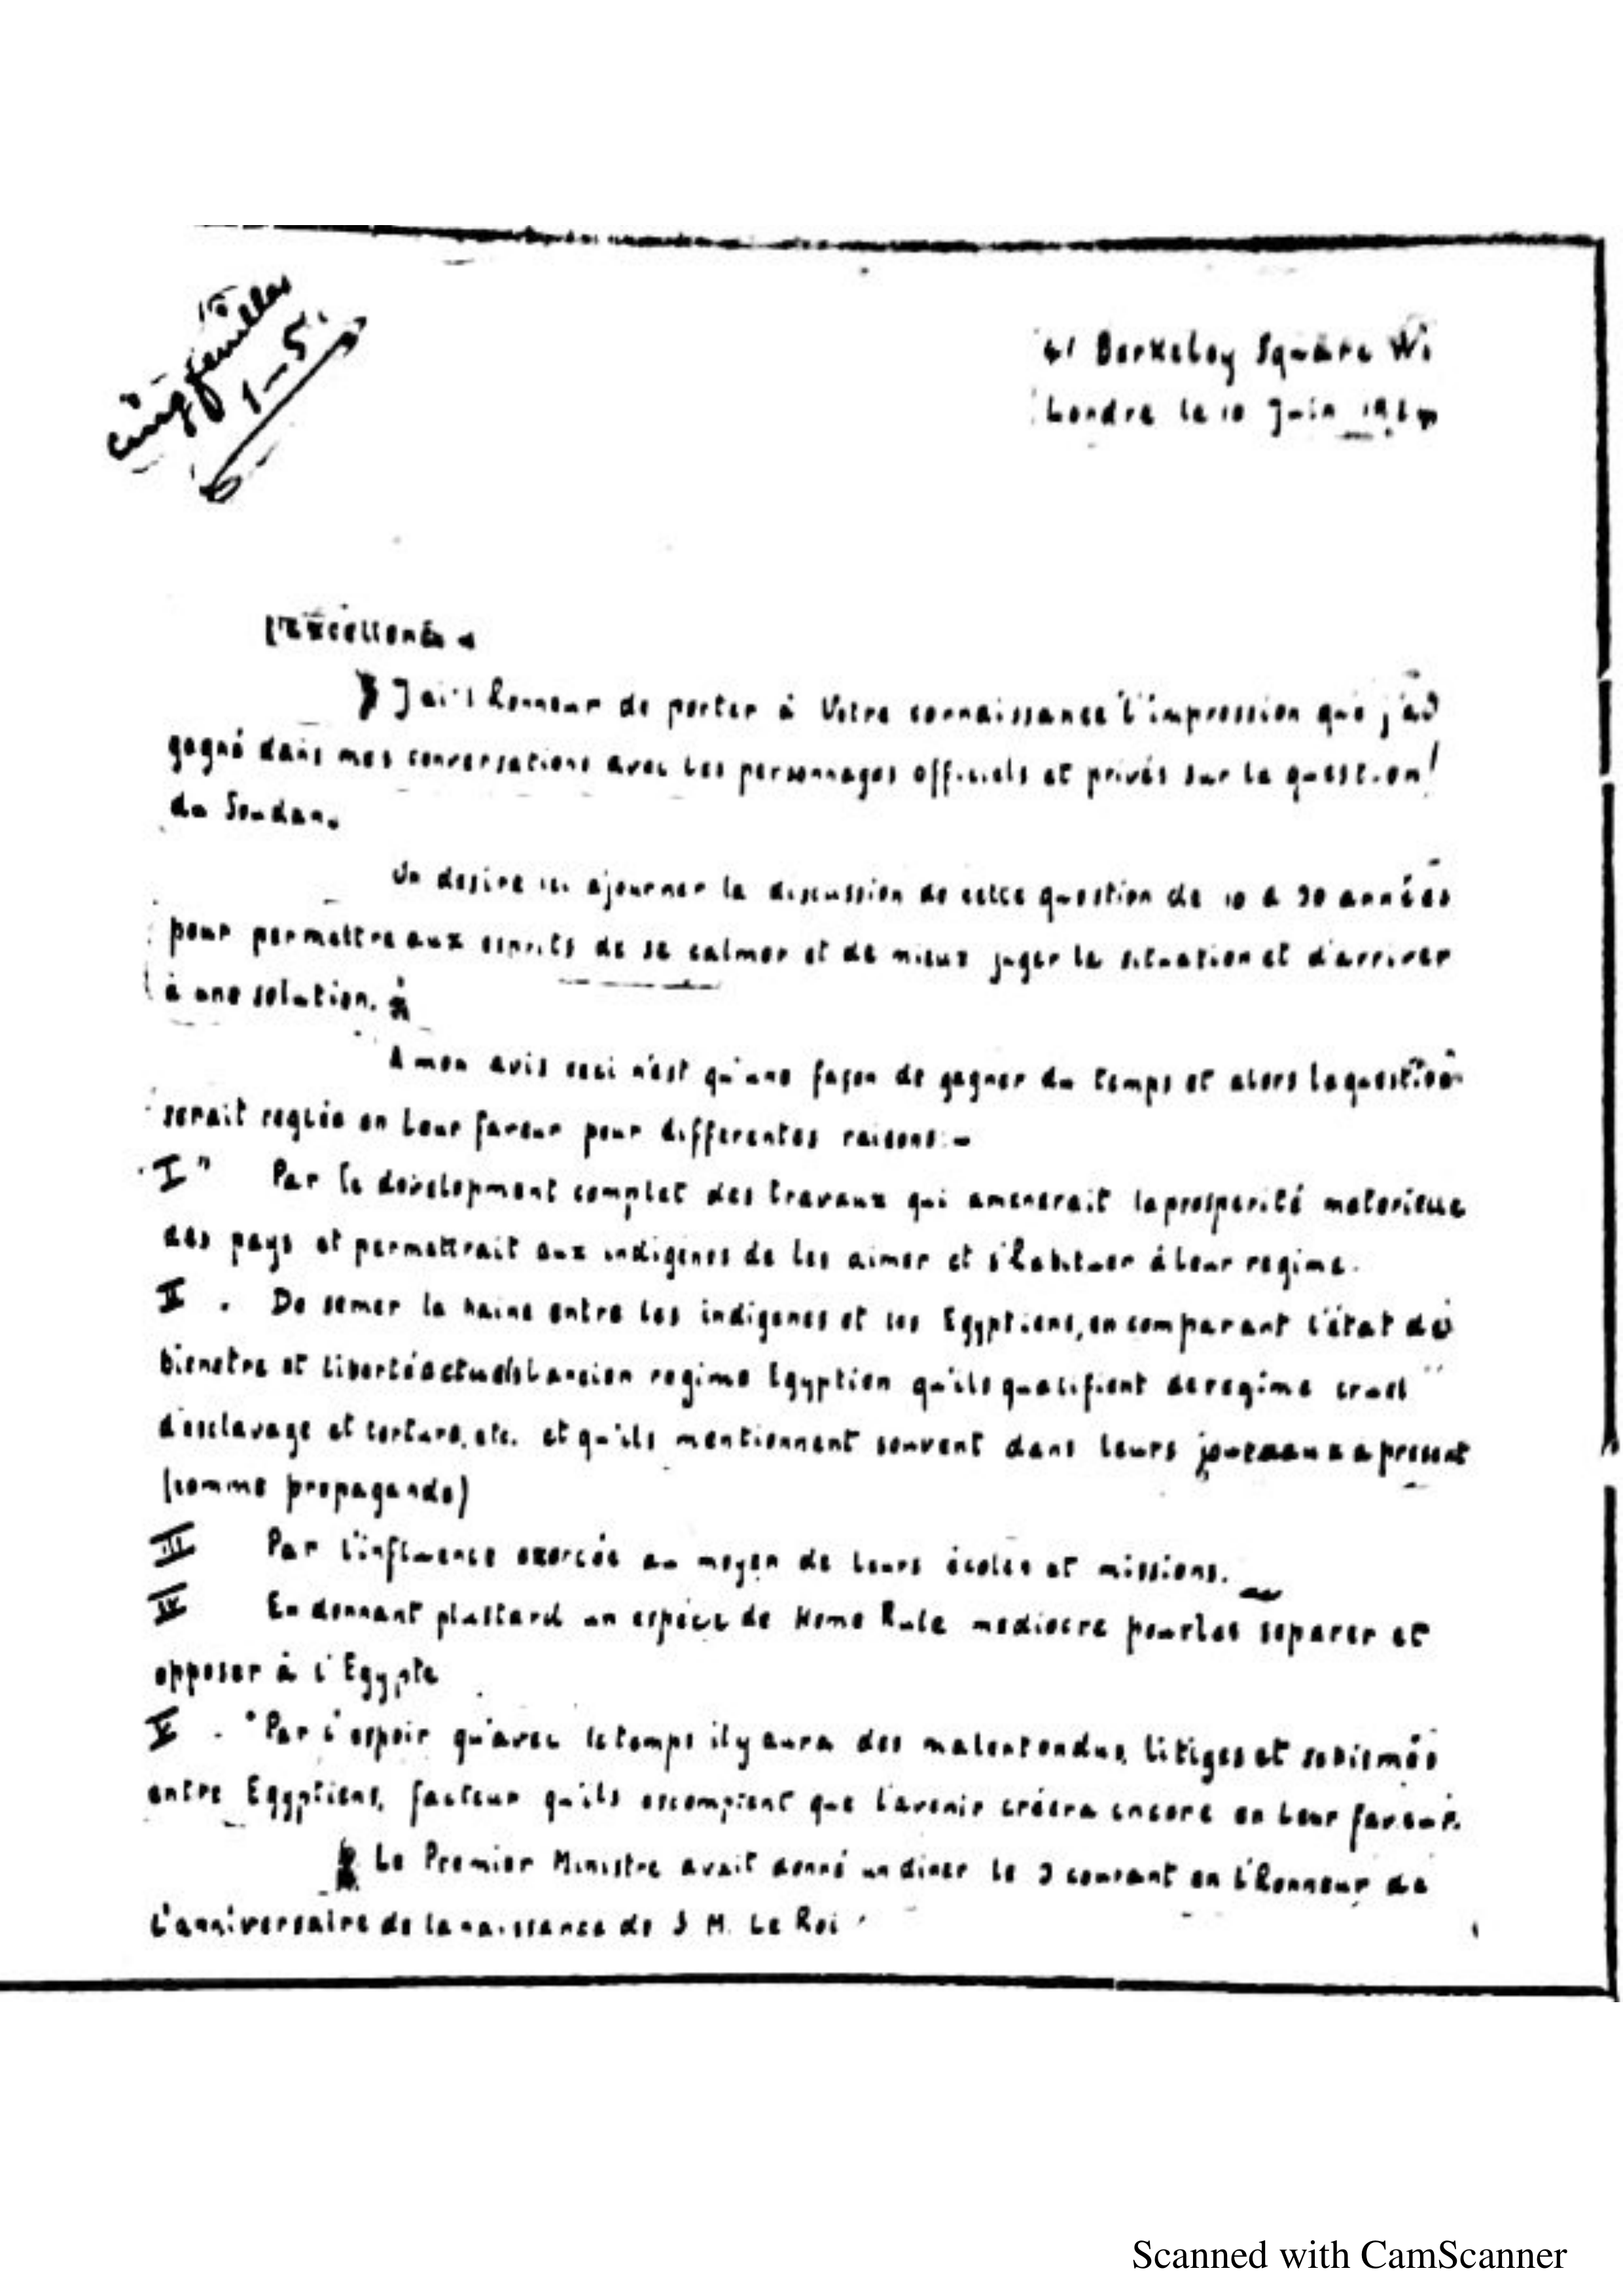 cinq feuilles
1-5
Berkeley Square W1
Londre le 10 Juin
Excellence
J'ai l'honneur de porter à Votre connaissance l'impression que j'ai
gagné dans mes conversations avec les personnages officiels et privés sur la question
du Soudan.
On desire ici ajourner la discussion de cette question de 10 à années
pour permettre aux esprits de se calmer et de mieux juger la situation et d'arriver
à une solution.
A mon avis ceci n'est qu'une façon de gagner du temps et alors la question
serait reglée en leur faveur pour differentes raisons:-
I" Par le development complet des travaux qui amenerait la prosperité materielle
des pays et permettrait aux indigènes de les aimer et s'habituer à leur regime.
II . De semer la haine entre les indigenes et les Egyptiens, en comparant l'état de
bienetre et liberté l'ancien regime Egyptien qu'ils qualifient de regime cruel
d'esclavage et torture, etc. et qu'ils mentionnent souvent dans leurs journaux a present
(comme propagande)
III Par l'influence exercée au moyen de leurs écoles et missions.
IV En donnant plustard un espèce de Home Rule mediocre pour les separer et
opposer à l'Egypte
V . "Par l'espoir qu'avec le temps il y aura des malentendus, litiges et schismes
entre Egyptiens, facteur qu'ils escomptent que l'avenir créera encore en leur faveur.
Le Premier Ministre avait donné un diner le 3 courant en l'honneur de
l'anniversaire de la naissance de S M. Le Roi
Scanned with CamScanner